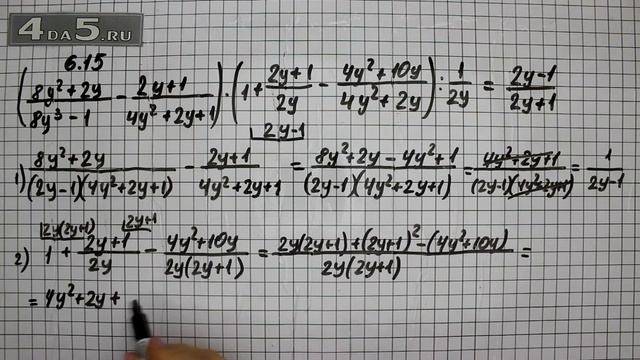 4DA5.RU
6.15
((8y²+2y)/(8y³-1) - (2y+1)/(4y²+2y+1)) · (1 + (2y+1)/(2y) - (4y²+10y)/(4y²+2y)) : 1/(2y) = (2y-1)/(2y+1)
2y-1
1) (8y²+2y)/((2y-1)(4y²+2y+1)) - (2y+1)/(4y²+2y+1) = (8y²+2y-4y²+1)/((2y-1)(4y²+2y+1)) = (4y²+2y+1)/((2y-1)(4y²+2y+1)) = 1/(2y-1)
2y(2y+1) 2y+1
2) 1 + (2y+1)/(2y) - (4y²+10y)/(2y(2y+1)) = (2y(2y+1)+(2y+1)²-(4y²+10y))/(2y(2y+1)) =
= 4y²+2y+